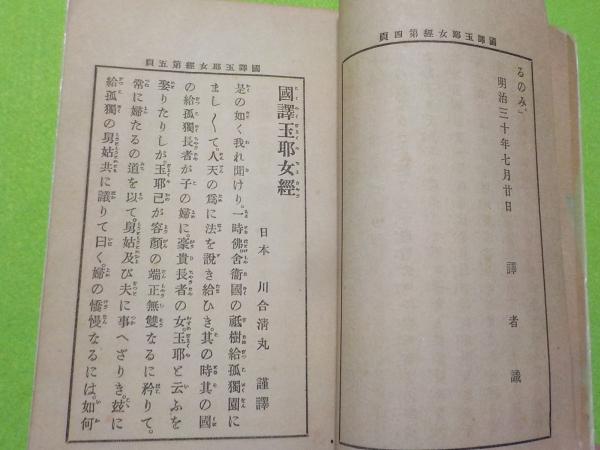 國譯玉耶女經第四頁
るのみ。
明治三十年七月廿日
譯者識
國譯玉耶女經第五頁
國譯玉耶女經
日本 川合清丸 謹譯
是の如く我れ聞けり。一時佛。舍衞國の祗樹給孤獨園に
まし〳〵て。人天の爲に法を說き給ひき。其の時其の國
の給孤獨長者が子の婦に。豪貴長者の女。玉耶と云ふを
娶りたりしが。玉耶己が容顏の端正無雙なるに矜りて。
常に婦たるの道を以て。舅姑及び夫に事へざりき。玆に
給孤獨の舅姑共に議りて曰く。婦の憍慢なるには。如何